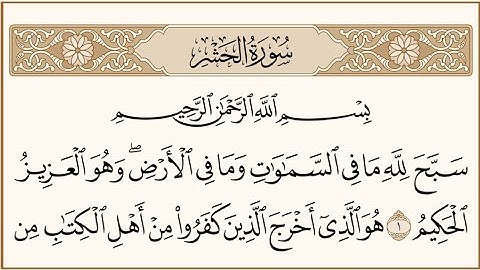 سُورَةُ الحَشْرِ
بِسْمِ ٱللَّهِ ٱلرَّحْمَٰنِ ٱلرَّحِيمِ
سَبَّحَ لِلَّهِ مَا فِي ٱلسَّمَٰوَٰتِ وَمَا فِي ٱلْأَرْضِۖ وَهُوَ ٱلْعَزِيزُ
ٱلْحَكِيمُ ١ هُوَ ٱلَّذِيٓ أَخْرَجَ ٱلَّذِينَ كَفَرُواْ مِنْ أَهْلِ ٱلْكِتَٰبِ مِن